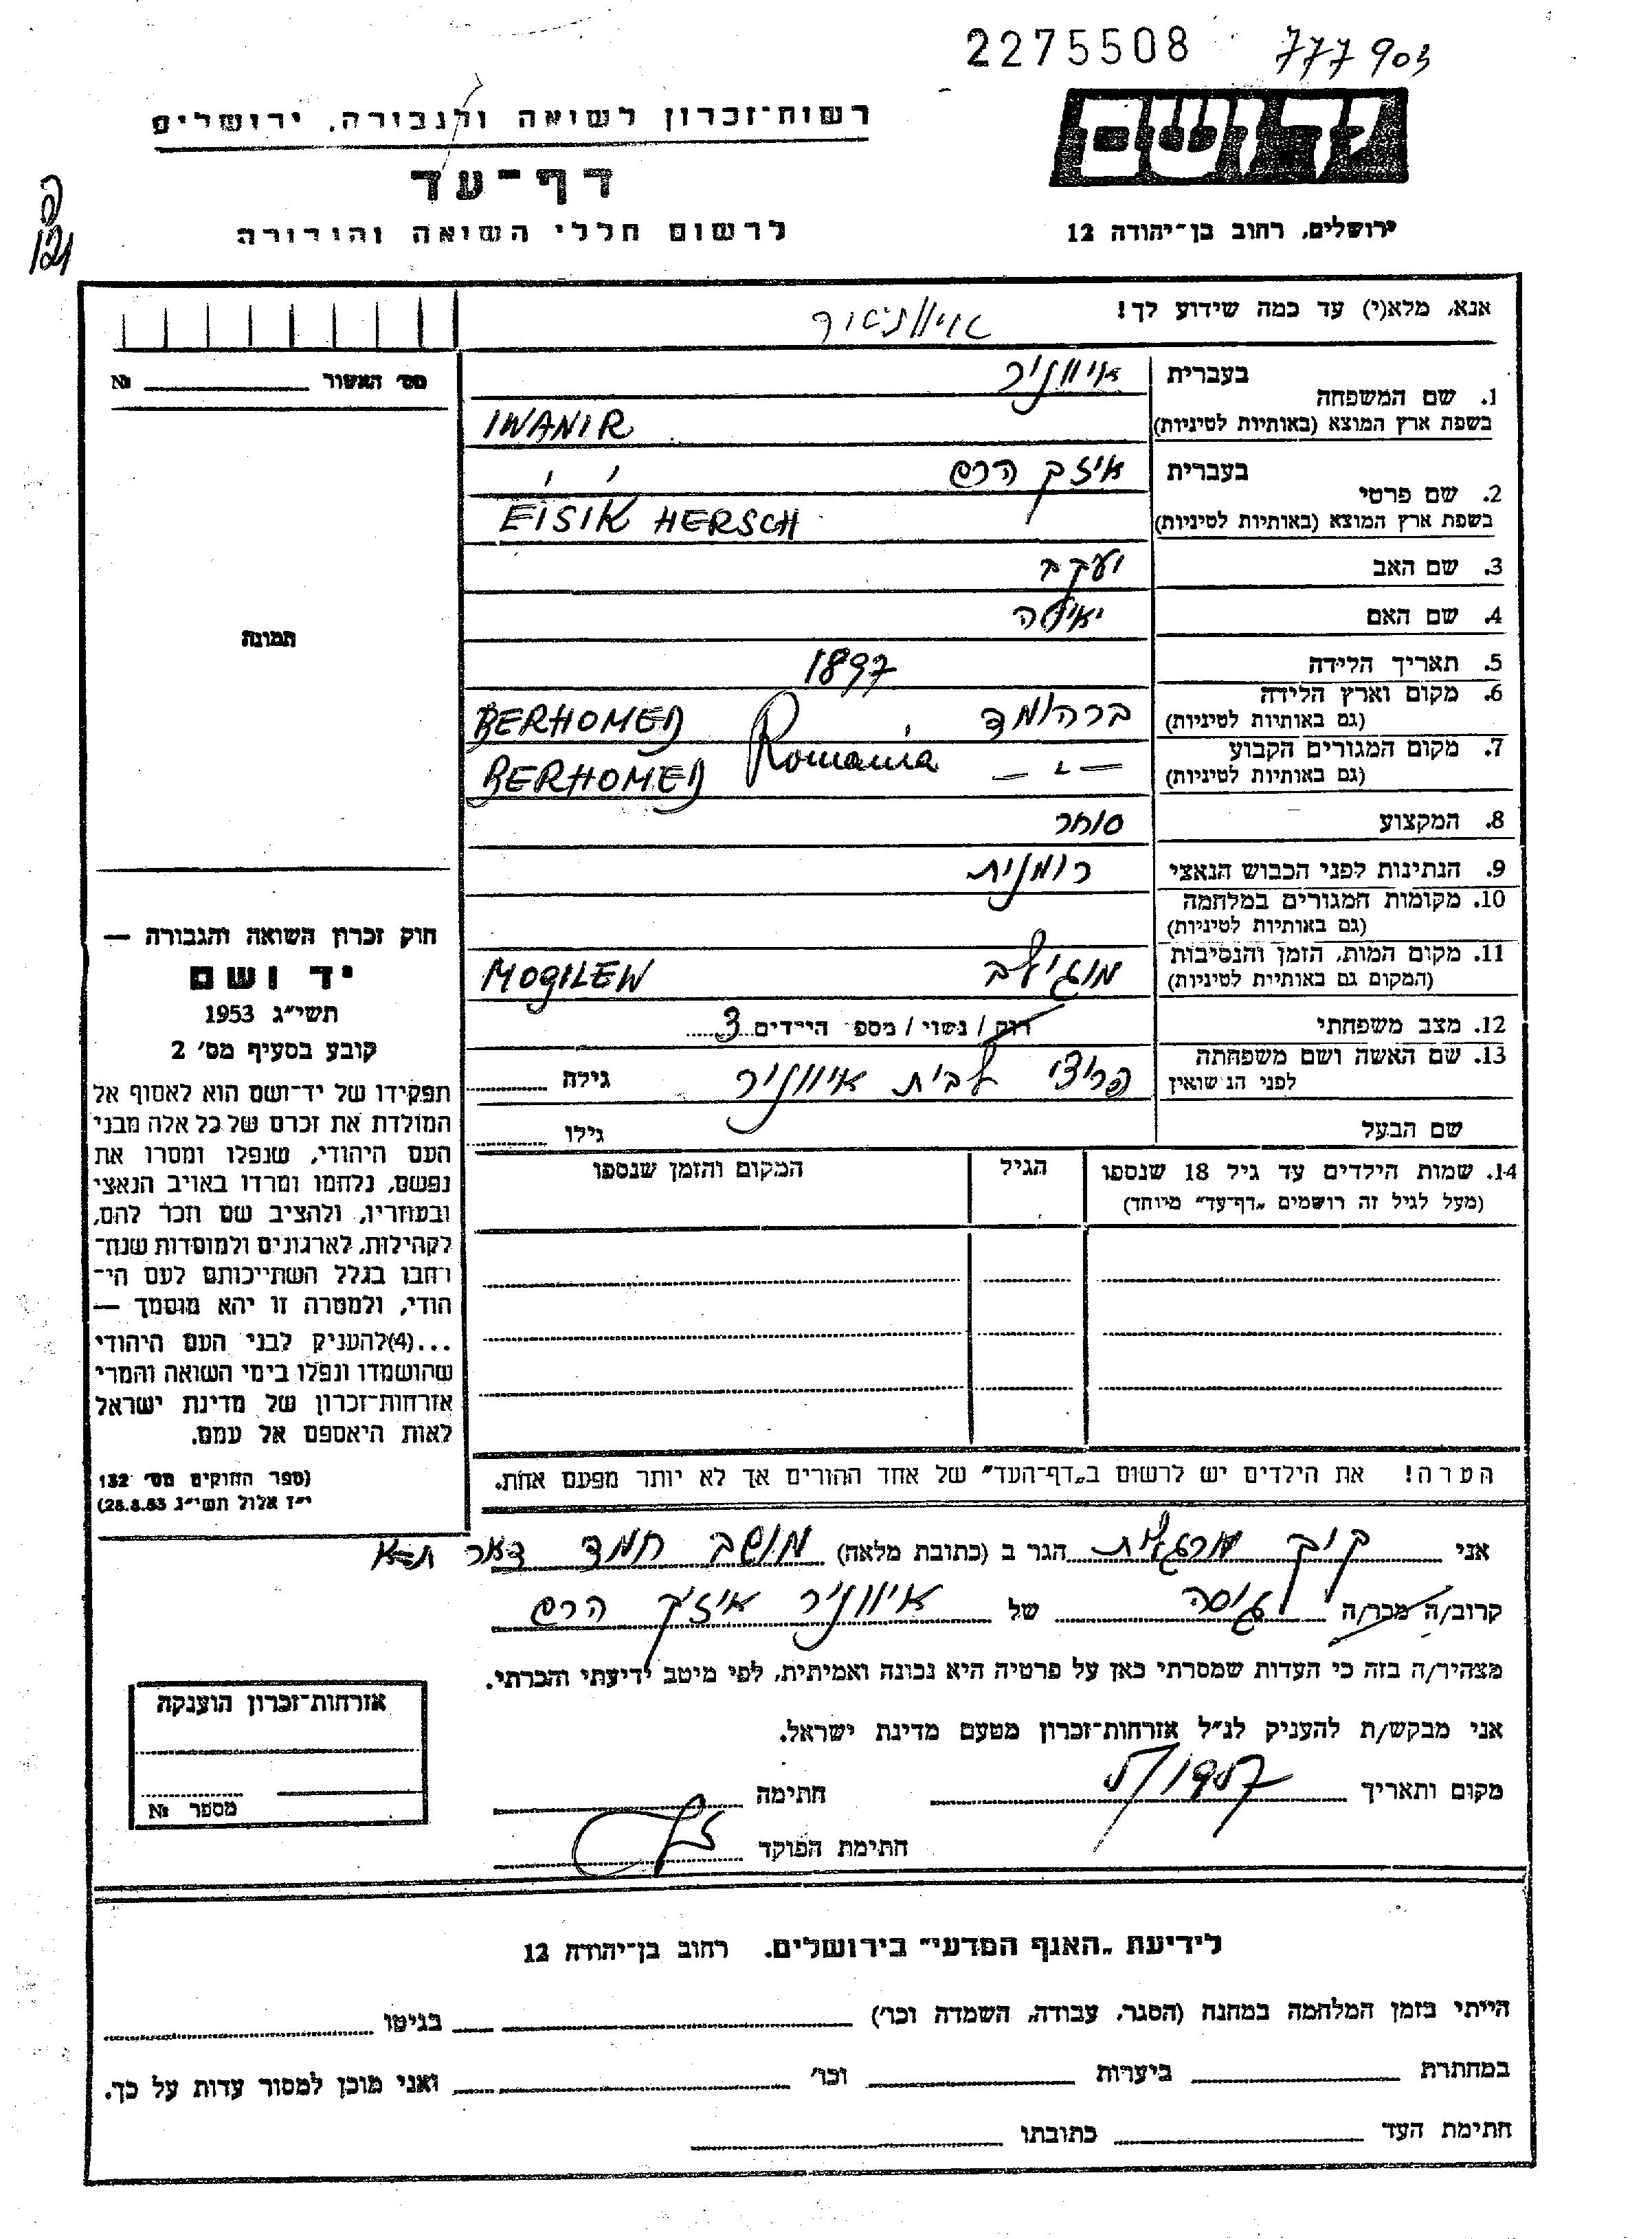 2275508 777903
רשות־זכרון לשואה ולגבורה, ירושלים
יד ושם
דף־עד
לרשום חללי השואה והגבורה
ירושלים, רחוב בן־יהודה 12
אנא, מלא(י) עד כמה שידוע לך!
מס׳ האשור №
1. שם המשפחה
בעברית איווניר
בשפת ארץ המוצא (באותיות לטיניות) IWANIR
2. שם פרטי
בעברית איזיק הרש
בשפת ארץ המוצא (באותיות לטיניות) EISIK HERSCH
3. שם האב יעקב
4. שם האם
5. תאריך הלידה 1897
6. מקום וארץ הלידה
(גם באותיות לטיניות) ברהומד Romania BERHOMED
7. מקום המגורים הקבוע
(גם באותיות לטיניות) — " — BERHOMED
8. המקצוע סוחר
9. הנתינות לפני הכבוש הנאצי רומנית
10. מקומות המגורים במלחמה
(גם באותיות לטיניות)
11. מקום המות, הזמן והנסיבות
(המקום גם באותיית לטיניות) מוגילב MOGILEW
12. מצב משפחתי רווק / נשוי / מספ הילדים 3
13. שם האשה ושם משפחתה
לפני הנשואין פריצי לבית איווניר גילה
שם הבעל גילו
14. שמות הילדים עד גיל 18 שנספו הגיל המקום והזמן שנספו
(מעל לגיל זה רושמים „דף־עד" מיוחד)
הערה! את הילדים יש לרשום ב„דף־העד" של אחד ההורים אך לא יותר מפעם אחת.
תמונה
חוק זכרון השואה והגבורה —
יד ושם
תשי״ג 1953
קובע בסעיף מס׳ 2
תפקידו של יד־ושם הוא לאסוף אל
המולדת את זכרם של כל אלה מבני
העם היהודי, שנפלו ומסרו את
נפשם, נלחמו ומרדו באויב הנאצי
ובעוזריו, ולהציב שם וזכר להם,
לקהילות, לארגונים ולמוסדות שנח־
רחבו בגלל השתייכותם לעם הי־
הודי, ולמטרה זו יהא מוסמך —
...(4)להעניק לבני העם היהודי
שהושמדו ונפלו בימי השואה והמרי
אזרחות־זכרון של מדינת ישראל
לאות היאספם אל עמם.
(ספר החוקים מס׳ 132
י״ז אלול תשי״ג 28.8.53)
אני קויק מרגלית הגר ב (כתובת מלאה) מושב חמד דאר ת־א
קרוב/ה מכר/ה גיסה של איווניר איזיק הרש
מצהיר/ה בזה כי העדות שמסרתי כאן על פרטיה היא נכונה ואמיתית, לפי מיטב ידיעתי והכרתי.
אני מבקש/ת להעניק לנ״ל אזרחות־זכרון מטעם מדינת ישראל.
מקום ותאריך חתימה
חתימת הפוקד
אזרחות־זכרון הוענקה
מספר №
לידיעת „האגף המדעי" בירושלים. רחוב בן־יהודה 12
הייתי בזמן המלחמה במחנה (הסגר, עבודה, השמדה וכו׳) בגיטו
במחתרת ביערות וכו׳ ואני מוכן למסור עדות על כך.
חתימת העד כתובתו